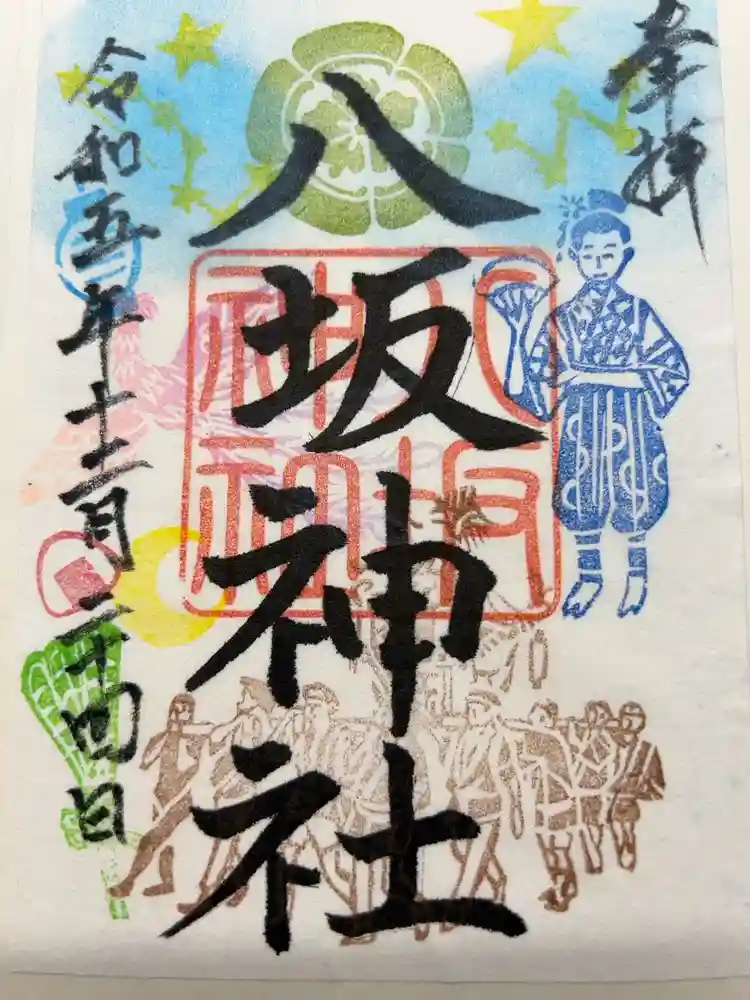 奉拝
八坂神社
八坂
神社
令和五年十二月二十四日